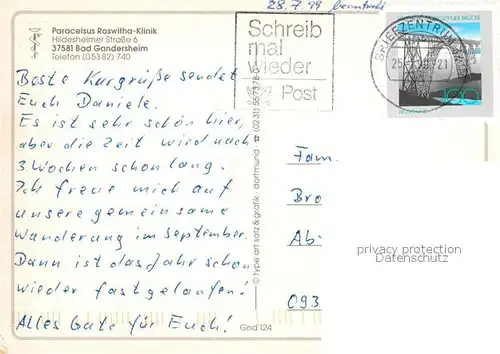 28.7.99 beantwortet
Paracelsus Roswitha-Klinik
Hildesheimer Straße 6
37581 Bad Gandersheim
Telefon (05382) 740
Schreib
mal
wieder
Post
BRIEFZENTRUM
21
100
Beste Kurgrüße sendet
Euch Daniele.
Es ist sehr schön hier,
aber die Zeit wird nach
3 Wochen schon lang.
Ich freue mich auf
unsere gemeinsame
Wanderung im September.
Dann ist das Jahr schon
wieder fast gelaufen!
Alles Gute für Euch!
Gnd 124
type art satz & grafik · dortmund ☎ (0231) 557378-0
Fam.
Bro
Ab-
093
privacy protection
Datenschutz